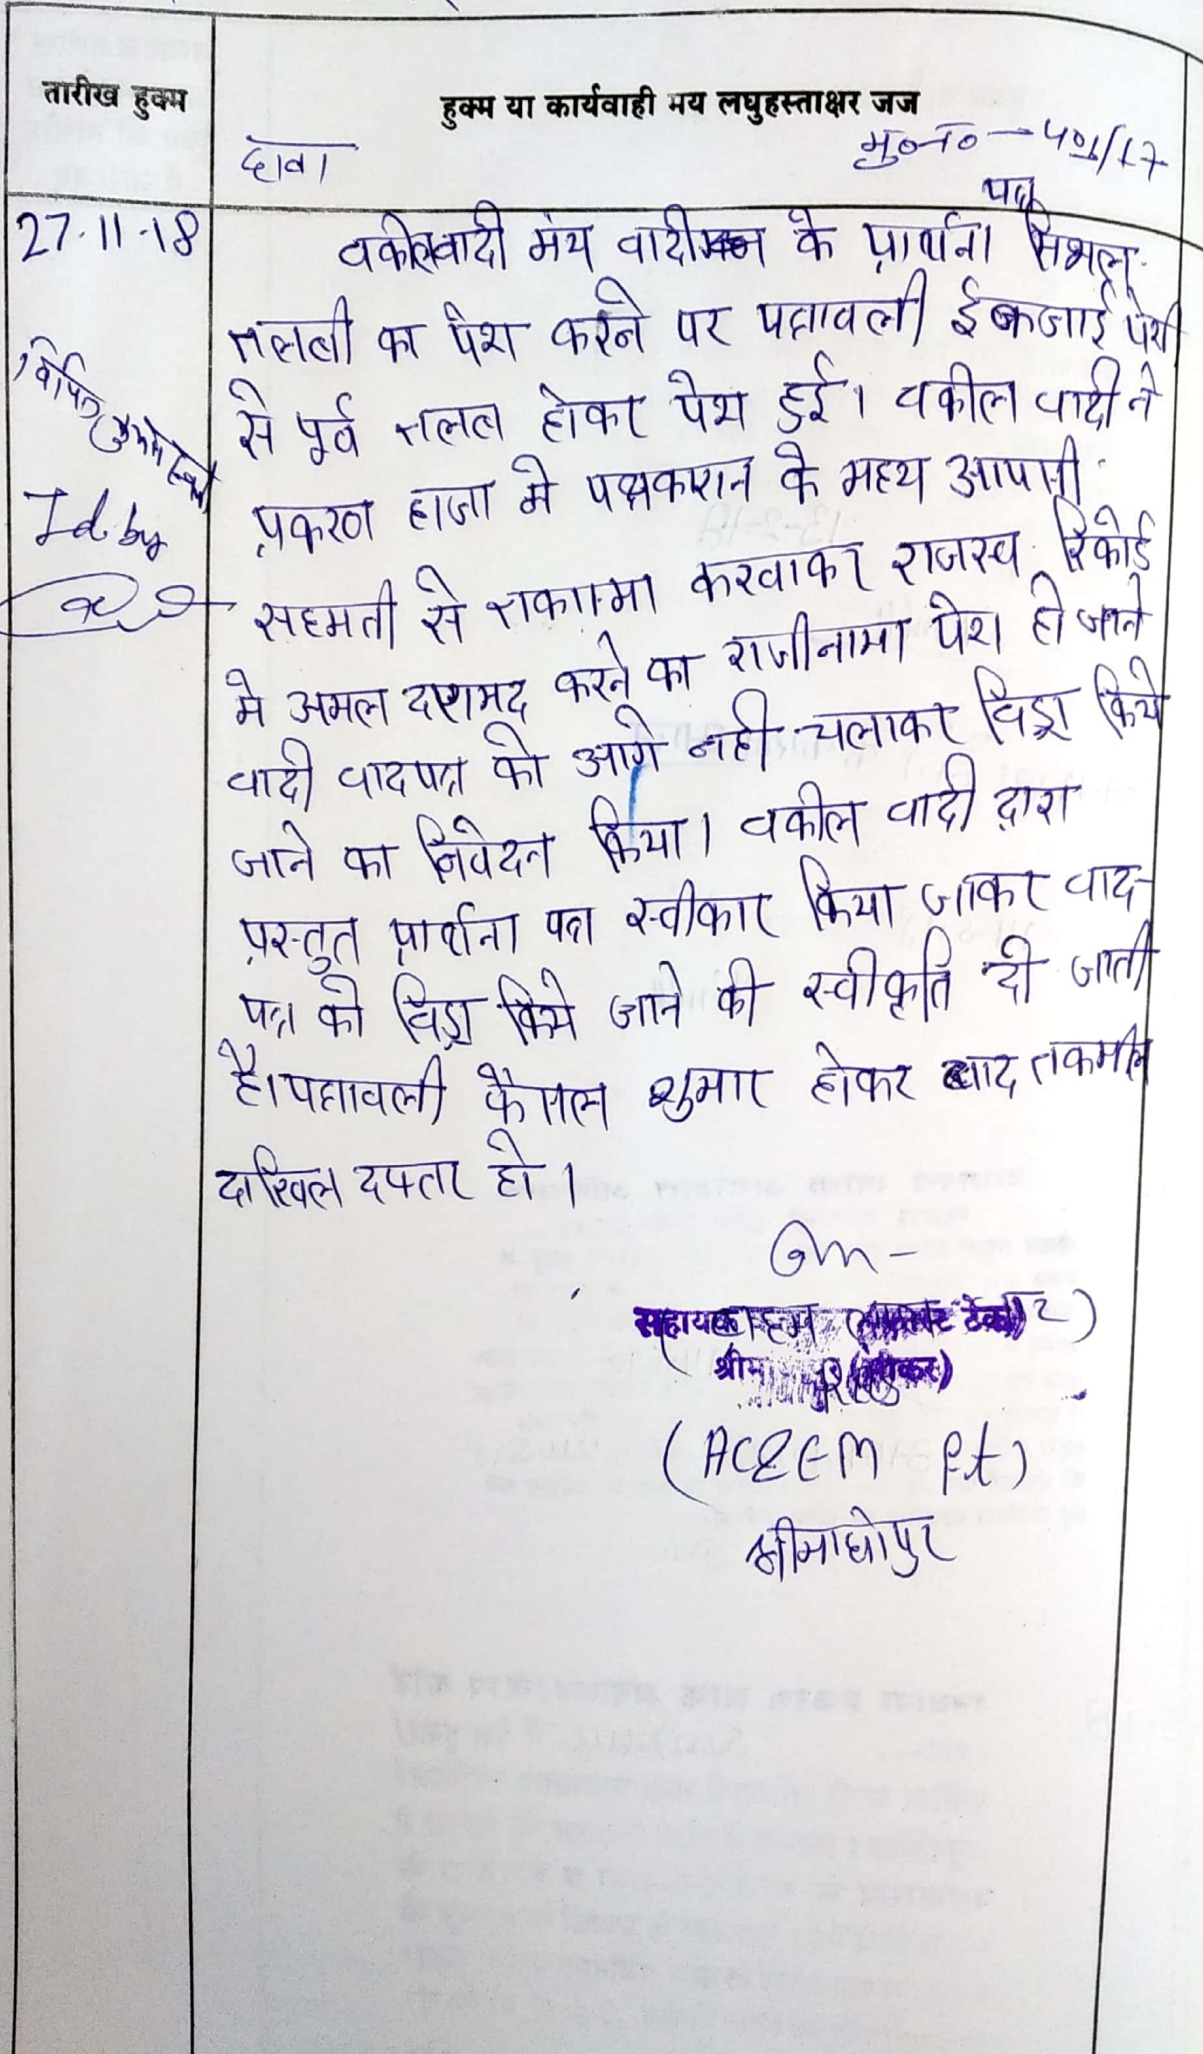 तारीख हुक्म
हुक्म या कार्यवाही मय लघुहस्ताक्षर जज
दावा
मु०न० - 401/17
27.11.18
पत्र
वकील वादी मय वादीगण के प्रार्थना मिसल
तलबी का पेश करने पर पत्रावली ईकजाई पेशी
से पूर्व तलब होकर पेश हुई। वकील वादी ने
प्रकरण हाजा मे पक्षकारान के मध्य आपसी
सहमती से तकासमा करवाकर राजस्व रिकोर्ड
मे अमल दरामद करने का राजीनामा पेश हो जाने
वादी वादपत्र को आगे नही चलाकर विड्रा किये
जाने का निवेदन किया। वकील वादी द्वारा
प्रस्तुत प्रार्थना पत्र स्वीकार किया जाकर वाद-
पत्र को विड्रा किये जाने की स्वीकृति दी जाती
है। पत्रावली फैसल शुमार होकर बाद तकमील
दाखिल दफ्तर हो।
Id. by
सहायक
(ACEEM Ft)
श्रीमाधोपुर